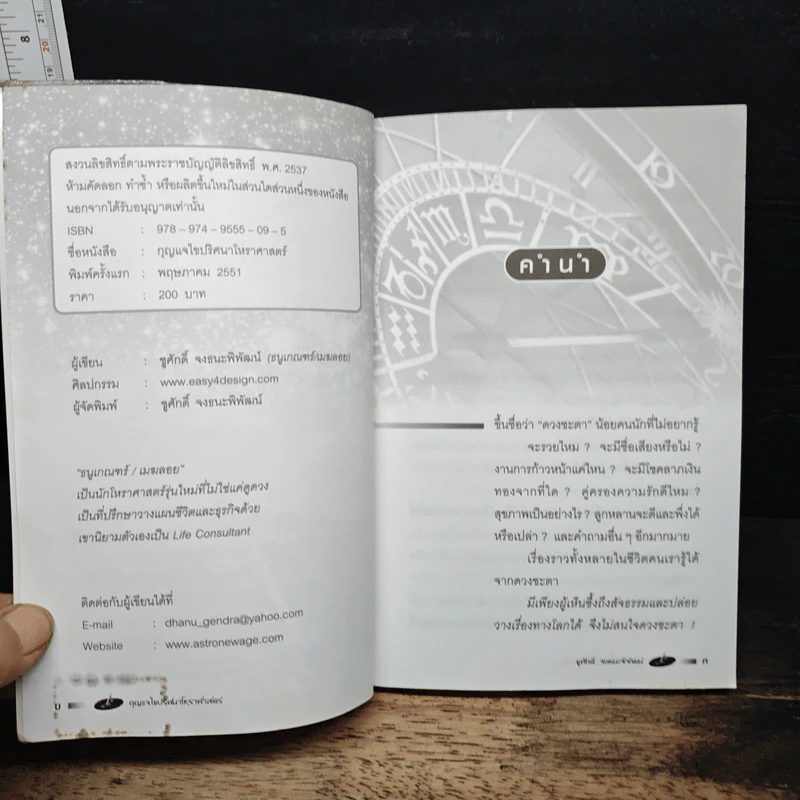 8
19 20 21
สงวนลิขสิทธิ์ตามพระราชบัญญัติลิขสิทธิ์ พ.ศ. 2537
ห้ามคัดลอก ทำซ้ำ หรือผลิตขึ้นใหม่ในส่วนใดส่วนหนึ่งของหนังสือ
นอกจากได้รับอนุญาตเท่านั้น
ISBN : 978 - 974 - 9555 - 09 - 5
ชื่อหนังสือ : กุญแจไขปริศนาโหราศาสตร์
พิมพ์ครั้งแรก : พฤษภาคม 2551
ราคา : 200 บาท
ผู้เขียน : ชูศักดิ์ จงธนะพิพัฒน์ (ธนูเกณฑร์/เมฆลอย)
ศิลปกรรม : www.easy4design.com
ผู้จัดพิมพ์ : ชูศักดิ์ จงธนะพิพัฒน์
"ธนูเกณฑร์ / เมฆลอย"
เป็นนักโหราศาสตร์รุ่นใหม่ที่ไม่ใช่แค่ดูดวง
เป็นที่ปรึกษาวางแผนชีวิตและธุรกิจด้วย
เขานิยามตัวเองเป็น Life Consultant
ติดต่อกับผู้เขียนได้ที่
E-mail : dhanu_gendra@yahoo.com
Website : www.astronewage.com
ข กุญแจไขปริศนาโหราศาสตร์
คำนำ
ขึ้นชื่อว่า "ดวงชะตา" น้อยคนนักที่ไม่อยากรู้
จะรวยไหม ? จะมีชื่อเสียงหรือไม่ ?
งานการก้าวหน้าแค่ไหน ? จะมีโชคลาภเงิน
ทองจากที่ใด ? คู่ครองความรักดีไหม ?
สุขภาพเป็นอย่างไร ? ลูกหลานจะดีและพึ่งได้
หรือเปล่า ? และคำถามอื่น ๆ อีกมากมาย
เรื่องราวทั้งหลายในชีวิตคนเรารู้ได้
จากดวงชะตา
มีเพียงผู้เห็นซึ้งถึงสัจธรรมและปล่อย
วางเรื่องทางโลกได้ จึงไม่สนใจดวงชะตา !
ชูศักดิ์ จงธนะพิพัฒน์ ก